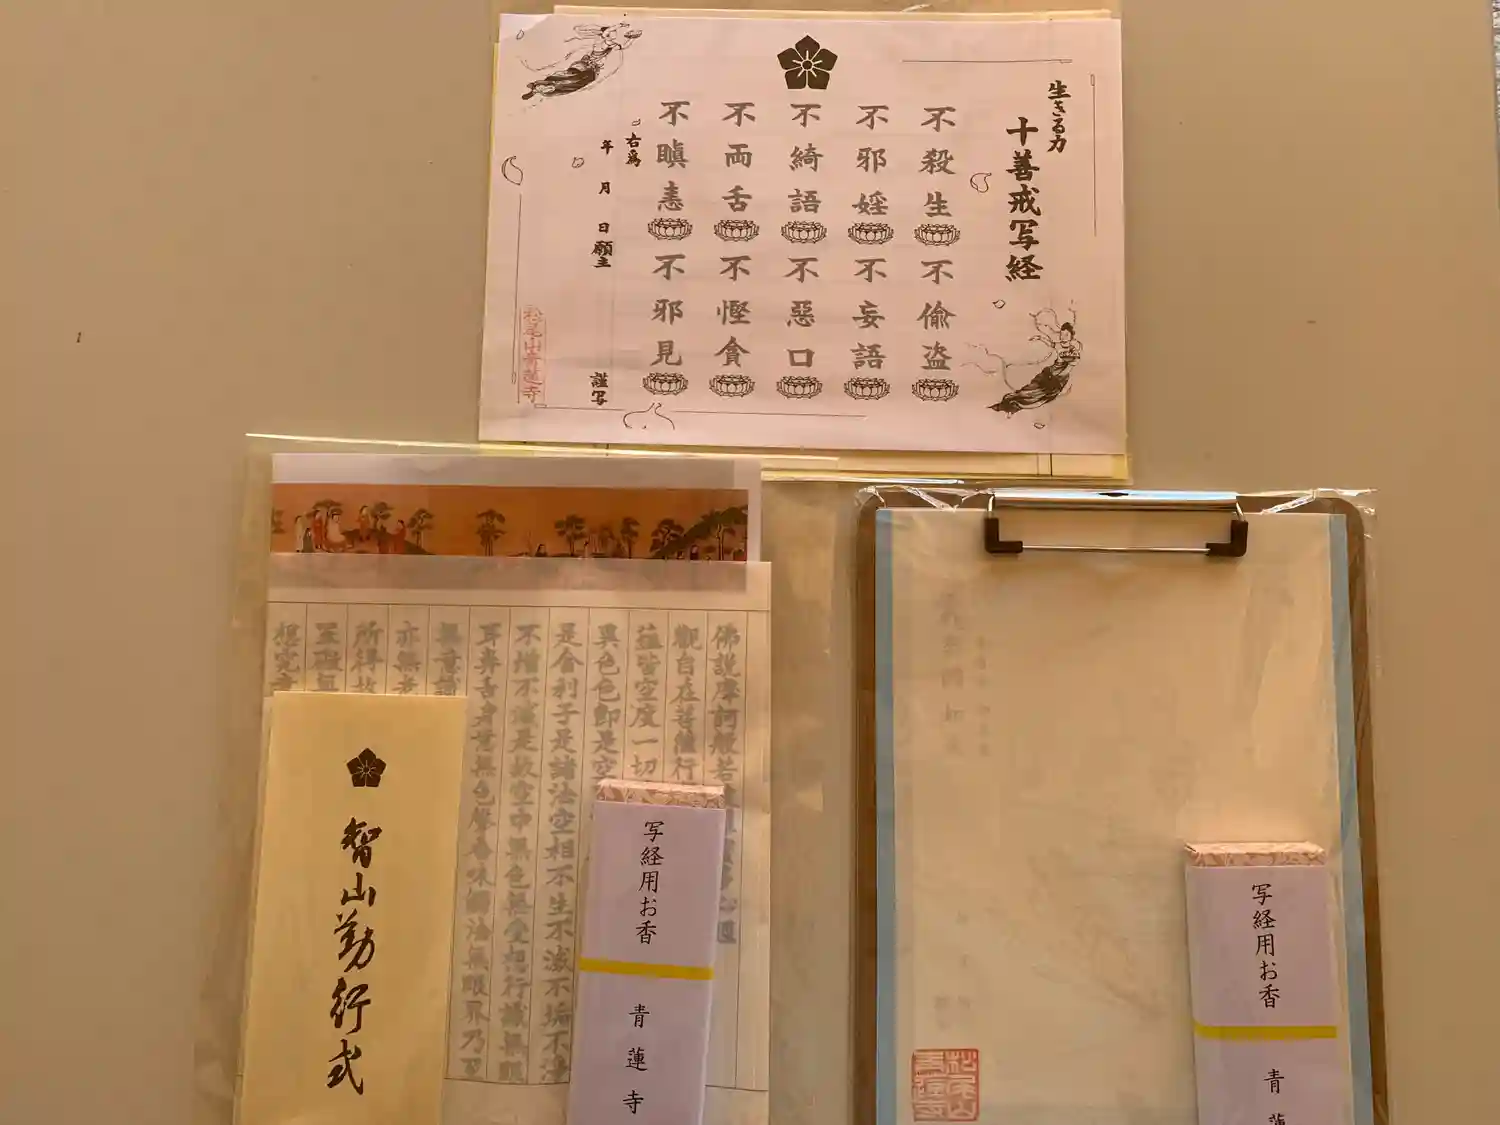 生きる力
十善戒写経
不殺生
不偸盗
不邪婬
不妄語
不綺語
不惡口
不両舌
不慳貪
不瞋恚
不邪見
右為
年 月 日 願主
謹写
松尾山青蓮寺
佛説摩訶般若
觀自在菩薩行
蘊皆空度一切
異色色即是空
是舎利子是諸法空相不生不滅不垢不浄
不増不減是故空中無色無受想行識無眼
耳鼻舌身意無色聲香味觸法無眼界乃至
無意識
亦無老
所得故
罣礙
想究竟
智山勤行式
写経用お香
青蓮寺
写経用お香
青蓮
松尾山
青蓮寺